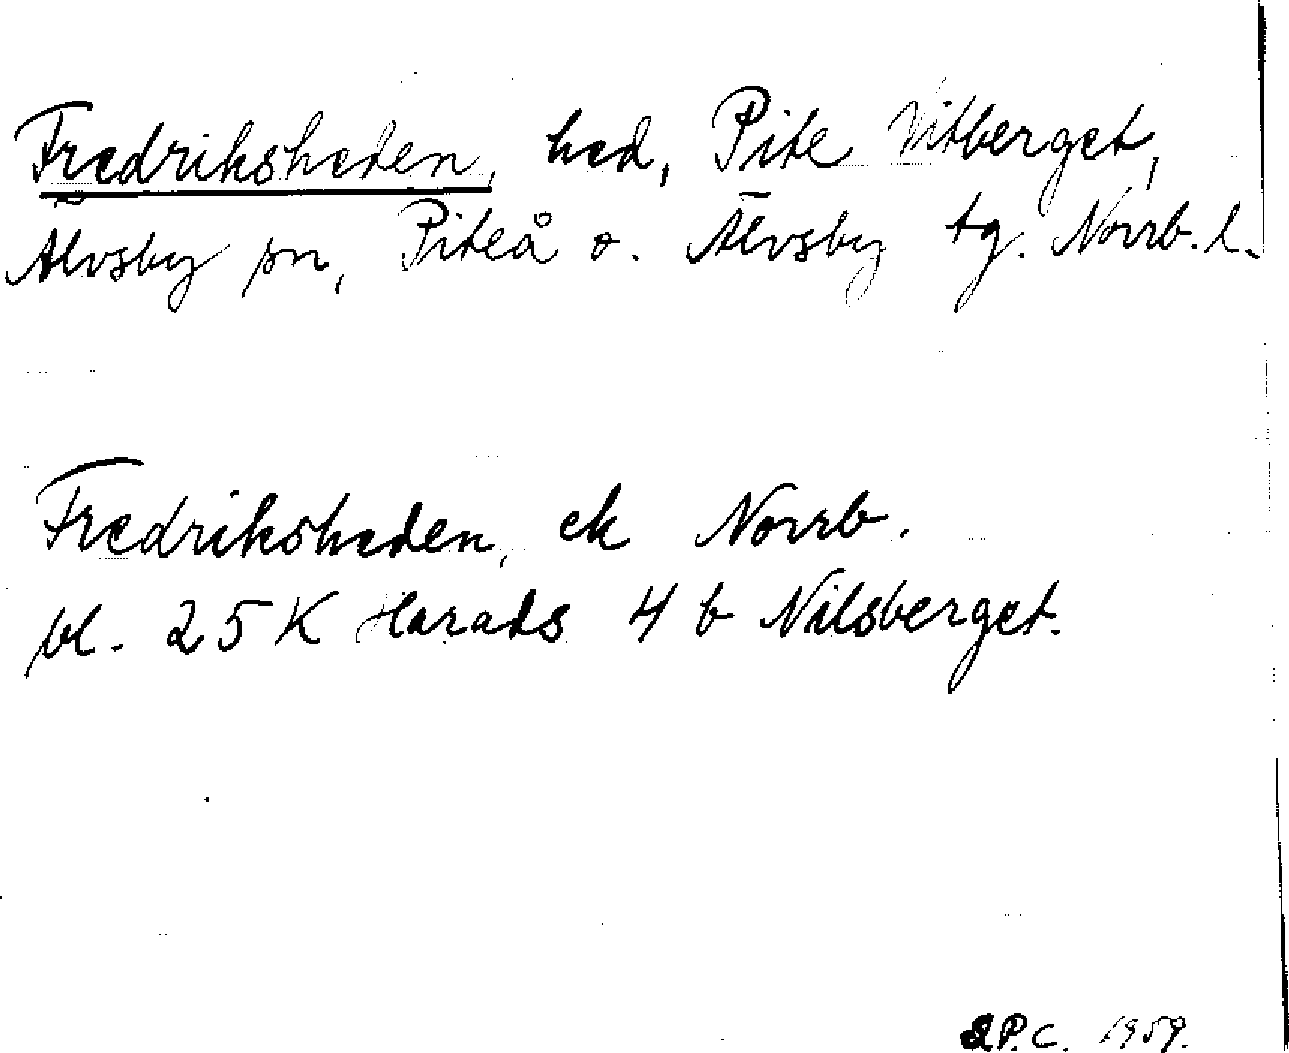 Fredriksheden, hed, Pite Vitberget,
Älvsby sn, Piteå o. Älvsby tg. Norrb. l.
Fredriksheden, ek Norrb.
bl. 25 K Harads 4 b Nilsberget.
S.P.C. 1959.